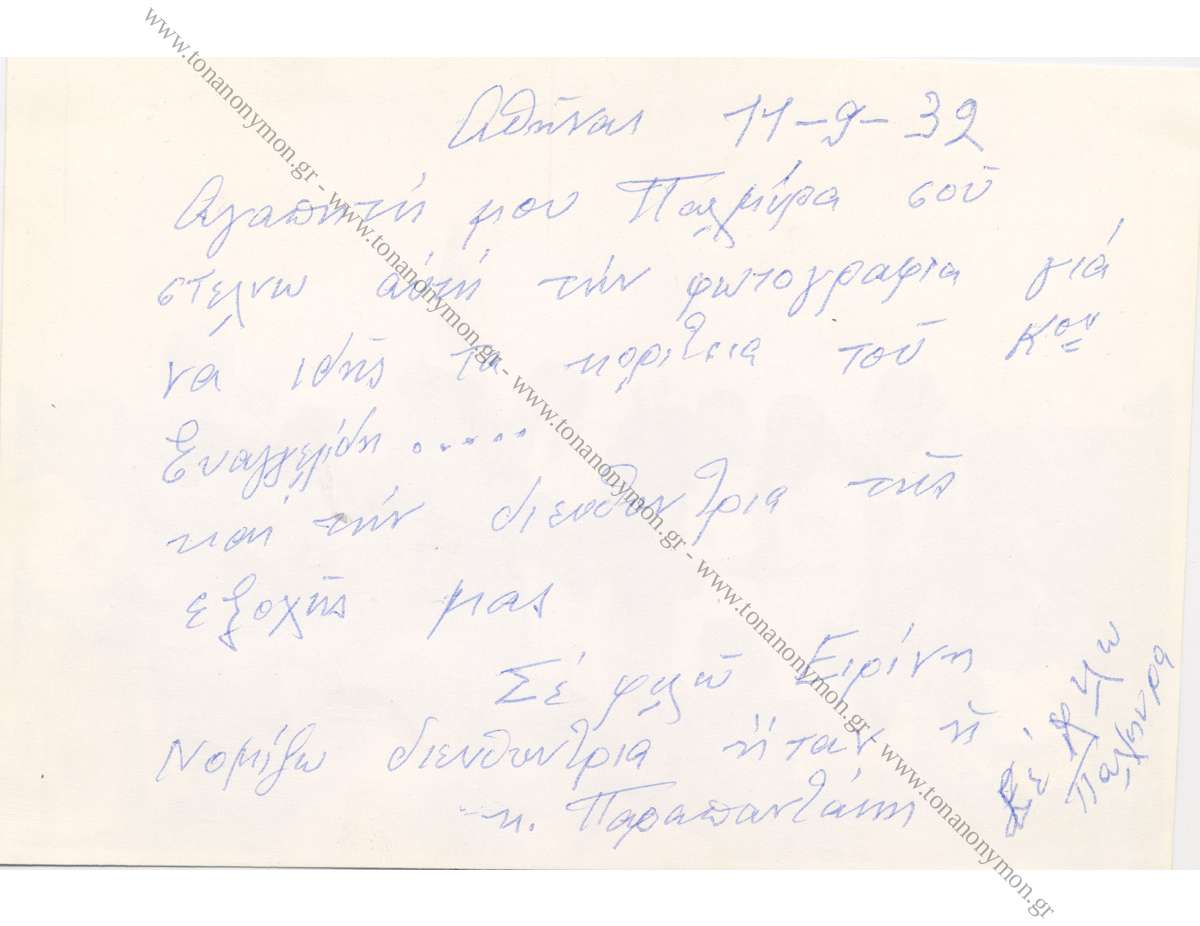 Αθήναι 11-9-32
Αγαπητή μου Παλμύρα σοῦ
στελνω αὐτή τήν φωτογραφια γιά
νά ιδῆς τα κοριτσια τοῦ Κου
Ευαγγελίδη ......
και τήν διευθυντρια τῆς
εξοχῆς μας
Σέ φιλῶ Ειρίνη
Νομίζω διευθυντρια ἤταν ἡ
κ. Παραπαντάκη
Σέ φιλω
Παλμυρα
www.tonanonymon.gr - www.tonanonymon.gr - www.tonanonymon.gr - www.tonanonymon.gr - www.tonanonymon.gr